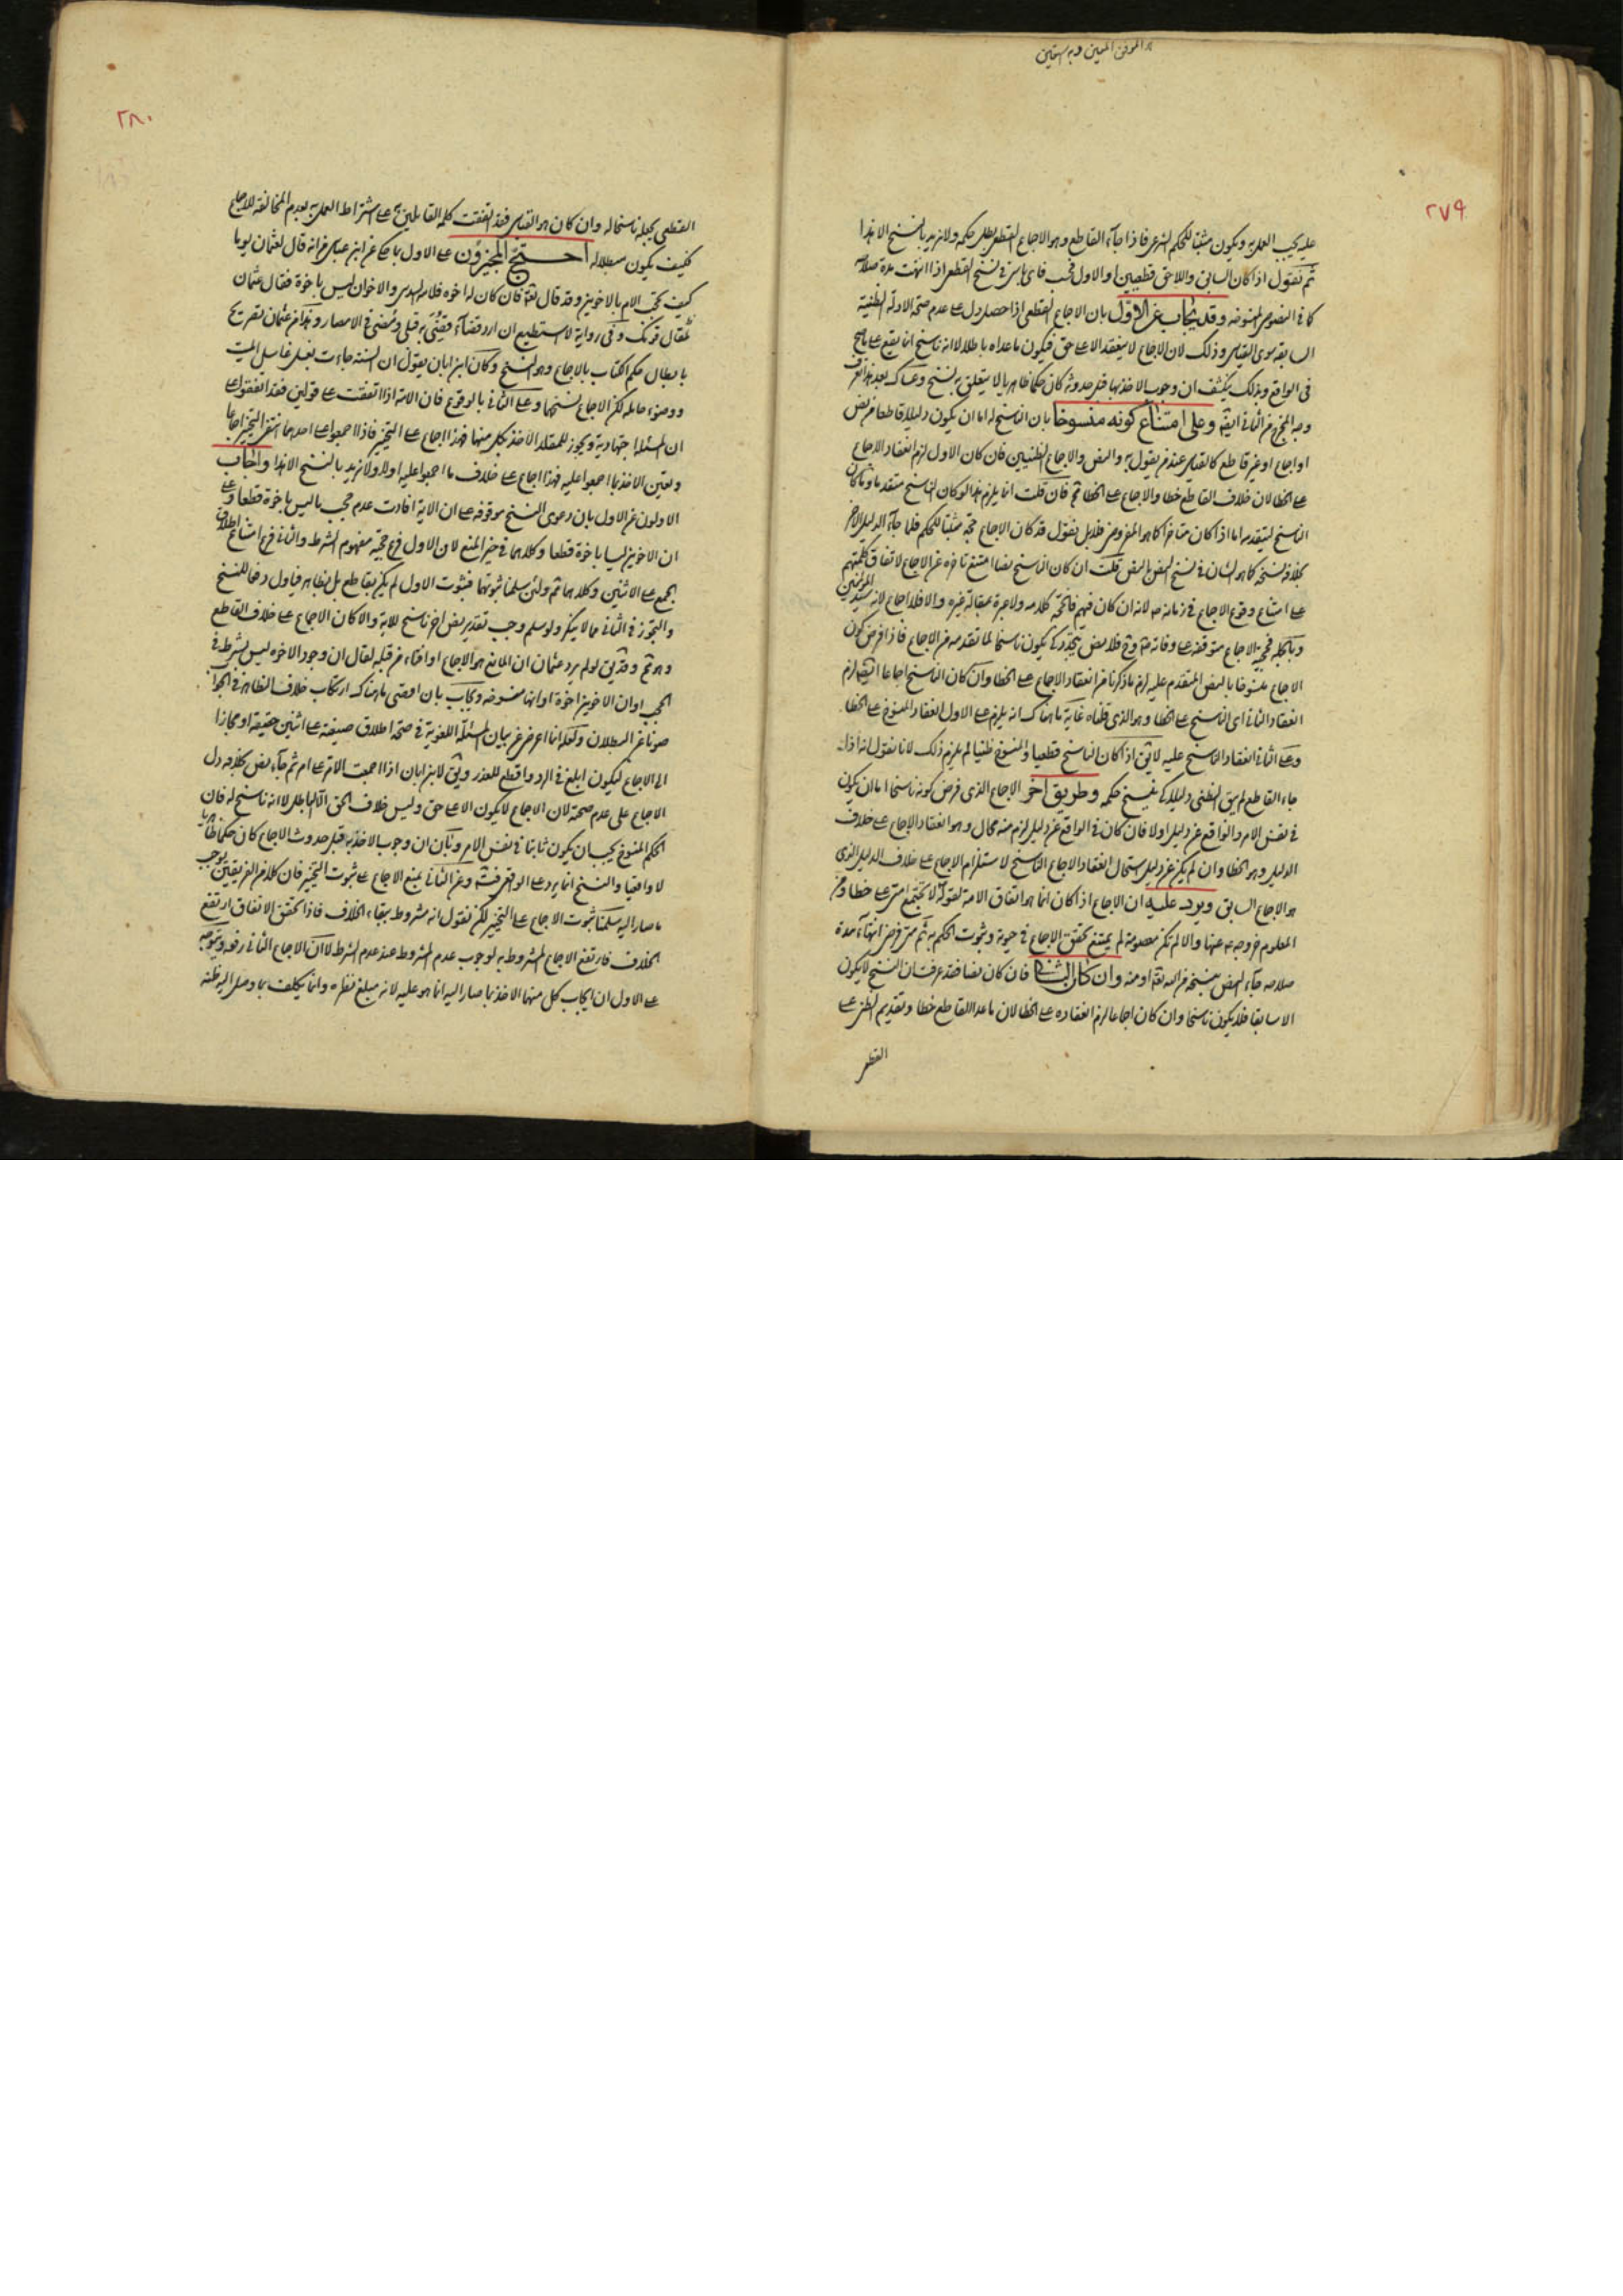 ٢٧٩
عليه يجب العمل به ويكون مثبتا للحكم الشرعي فاذا جاء القاطع وهو الاجماع القطعي بطل حكمه ولا نريد بالنسخ الا هذا
ثم نقول اذا كان السابق واللاحق قطعيين او الاول فحسب فاي باس في نسخ القطعي اذا انتهت مدة صلاحه
كما في النصوص المنسوخة وقد يجاب عن الاول بان الاجماع القطعي اذا حصل دل على عدم صحة الادلة الظنية
السابقة سوى القياس وذلك لان الاجماع لا ينعقد الا على حق فيكون ما عداه باطلا لا انه ناسخ انما يقع على ما صح
في الواقع وبذلك ينكشف ان وجوب الاخذ بها قبل حدوثه كان حكما ظاهريا لا يتعلق به نسخ وعساك بعد هذا تعرف
وجه المخرج من الثاني ايضا وعلى امتناع كونه منسوخا بان الناسخ له اما ان يكون دليلا قاطعا من نص
او اجماع او غير قاطع كالقياس عند من يقول به والنص والاجماع الظنيين فان كان الاول لزم انعقاد الاجماع
على الخطا لان خلاف القاطع خطا والاجماع على الخطا فان قلت انما يلزم هذا لو كان الناسخ متقدما
الناسخ لتقدمه اما اذا كان متاخرا كما هو المفروض فلا بل نقول قد كان الاجماع حجة مثبتا للحكم فلما جاء الدليل الاخر
بخلافه نسخه كما هو الشان في نسخ النص بالنص قلت ان كان الناسخ نصا امتنع تاخره عن الاجماع لاتفاق كلمتهم
على امتناع وقوع الاجماع في زمانه لانه ان كان فيهم فالحجة كلامه ولا عبرة بمقالة غيره والا فلا اجماع لانه سيد المؤمنين
وبالجملة فحجية الاجماع متوقفة على وفاته فلا نص يتجدد كي يكون ناسخا لما تقدمه من الاجماع فاذا فرض كون
الاجماع منسوخا بالنص المتقدم عليه لزم ما ذكرنا من انعقاد الاجماع على الخطا وان كان الناسخ اجماعا ايضا لزم
انعقاد الثاني اي الناسخ على الخطا وهو الذي قلناه غاية ما هناك انه يلزم على الاول انعقاد المنسوخ على الخطا
وعلى الثاني انعقاد الناسخ عليه لا يق اذا كان الناسخ قطعيا والمنسوخ ظنيا لم يلزم ذلك لانا نقول انه اذا
جاء القاطع لم يبق الظني دليلا كي ينسخ حكمه وطريق اخر الاجماع الذي فرض كونه ناسخا اما ان يكون
في نفس الامر والواقع عن دليل او لا فان كان في الواقع عن دليل لزم منه محال وهو انعقاد الاجماع على خلاف
الدليل وهو الخطا وان لم يكن عن دليل استحال انعقاد الاجماع الناسخ لاستلزام الاجماع على خلاف الدليل الذي
هو الاجماع السابق ويرد عليه ان الاجماع اذا كان انما هو اتفاق الامة لقوله لا تجتمع امتي على خطا ومن
المعلوم خروجه عنها والا لم تكن معصومة لم يمتنع تحقق الاجماع في حيوته وثبوت الحكم به ثم متى فرض انتهاء مدة
صلاحه جاء النص بنسخه من الله تعالى او منه وان كان الثاني فان كان نصا فقد عرفت ان النسخ لا يكون
الا سابقا فلا يكون ناسخا وان كان اجماعا لزم انعقاده على الخطا لان ما عدا القاطع خطا وتقديم الظني على
القطعي
٢٨٠
القطعي بجعله ناسخا له وان كان هو القياس فقد اتفقت كلمة القائلين به على اشتراط العمل به بعدم المخالفة للاجماع
فكيف يكون مبطلا له احتج المجيزون على الاول بما حكي عن ابن عباس من انه قال لعثمان يوما
كيف تحجب الام بالاخوين وقد قال تعالى فان كان له اخوة فلامه السدس والاخوان ليس باخوة فقال عثمان
قومك وفي رواية لا استطيع ان ارد قضاء قضي به قبلي ومضى في الامصار وهذا من عثمان تصريح
بابطال حكم الكتاب بالاجماع وهو النسخ وكان ابن ابان يقول ان السنة جاءت بغسل غاسل الميت
ووضوء حامله لكن الاجماع نسخها وعلى الثاني بالوقوع فان الامة اذا اتفقت على قولين فقد اتفقوا على
ان المسئلة اجتهادية ويجوز للمقلد الاخذ بكل منها فهذا اجماع على التخيير فاذا اجمعوا على احدهما انتفى التخيير اجماعا
وتعين الاخذ بما اجمعوا عليه فهذا اجماع على خلاف ما اجمعوا عليه اولا ولا نريد بالنسخ الا هذا واجاب
الاولون عن الاول بان دعوى النسخ موقوفة على ان الاية افادت عدم حجب ما ليس باخوة قطعا وعلى
ان الاخوين ليسا باخوة قطعا وكلاهما في حيز المنع لان الاول فرع حجية مفهوم الشرط والثاني فرع امتناع اطلاق
الجمع على الاثنين وكلاهما ولئن سلمنا ثبوتهما فثبوت الاول لم يكن بقاطع بل بظاهر فيأول دفعا للنسخ
والتجوز في الثاني مما لا ينكر ولو سلم وجب تقدير نص اخر ناسخ للاية والا كان الاجماع على خلاف القاطع
وهو وقد يق لو لم يرد عثمان ان المانع هو الاجماع او افتاء من قبله لقال ان وجود الاخوة ليس بشرط في
الحجب او ان الاخوين اخوة او انها منسوخة ويجاب بان اقصى ما هناك ارتكاب خلاف الظاهر في الجواب
صونا عن البطلان ولعله انما اعرض عن بيان المسئلة اللغوية في صحة اطلاق صيغته على اثنين حقيقة او مجازا
الى الاجماع ليكون ابلغ في الرد واقطع للعذر ويق لابن ابان اذا اجمعت الامة على امر ثم جاء نص بخلافه دل
الاجماع على عدم صحته لان الاجماع لا يكون الا على حق وليس خلاف الحق الا الباطل لا انه ناسخ له فان
الحكم المنسوخ يجب ان يكون ثابتا في نفس الامر وبان ان وجوب الاخذ به قبل حدوث الاجماع كان حكما ظاهريا
لا واقعيا والنسخ انما يرد على الواقعي وعن الثاني بمنع الاجماع على ثبوت التخيير فان كلا من الفريقين يوجب
ما صار اليه سلمنا ثبوت الاجماع على التخيير لكن نقول انه مشروط ببقاء الخلاف فاذا تحقق الاتفاق ارتفع
الخلاف فارتفع الاجماع المشروط به لوجوب عدم المشروط عند عدم الشرط لا ان الاجماع الثاني رفعه ويتوجه
على الاول ان ايجاب كل منهما الاخذ بما صار اليه انما هو عليه لانه مبلغ نظره وانما يكلف بما وصل اليه ظنه